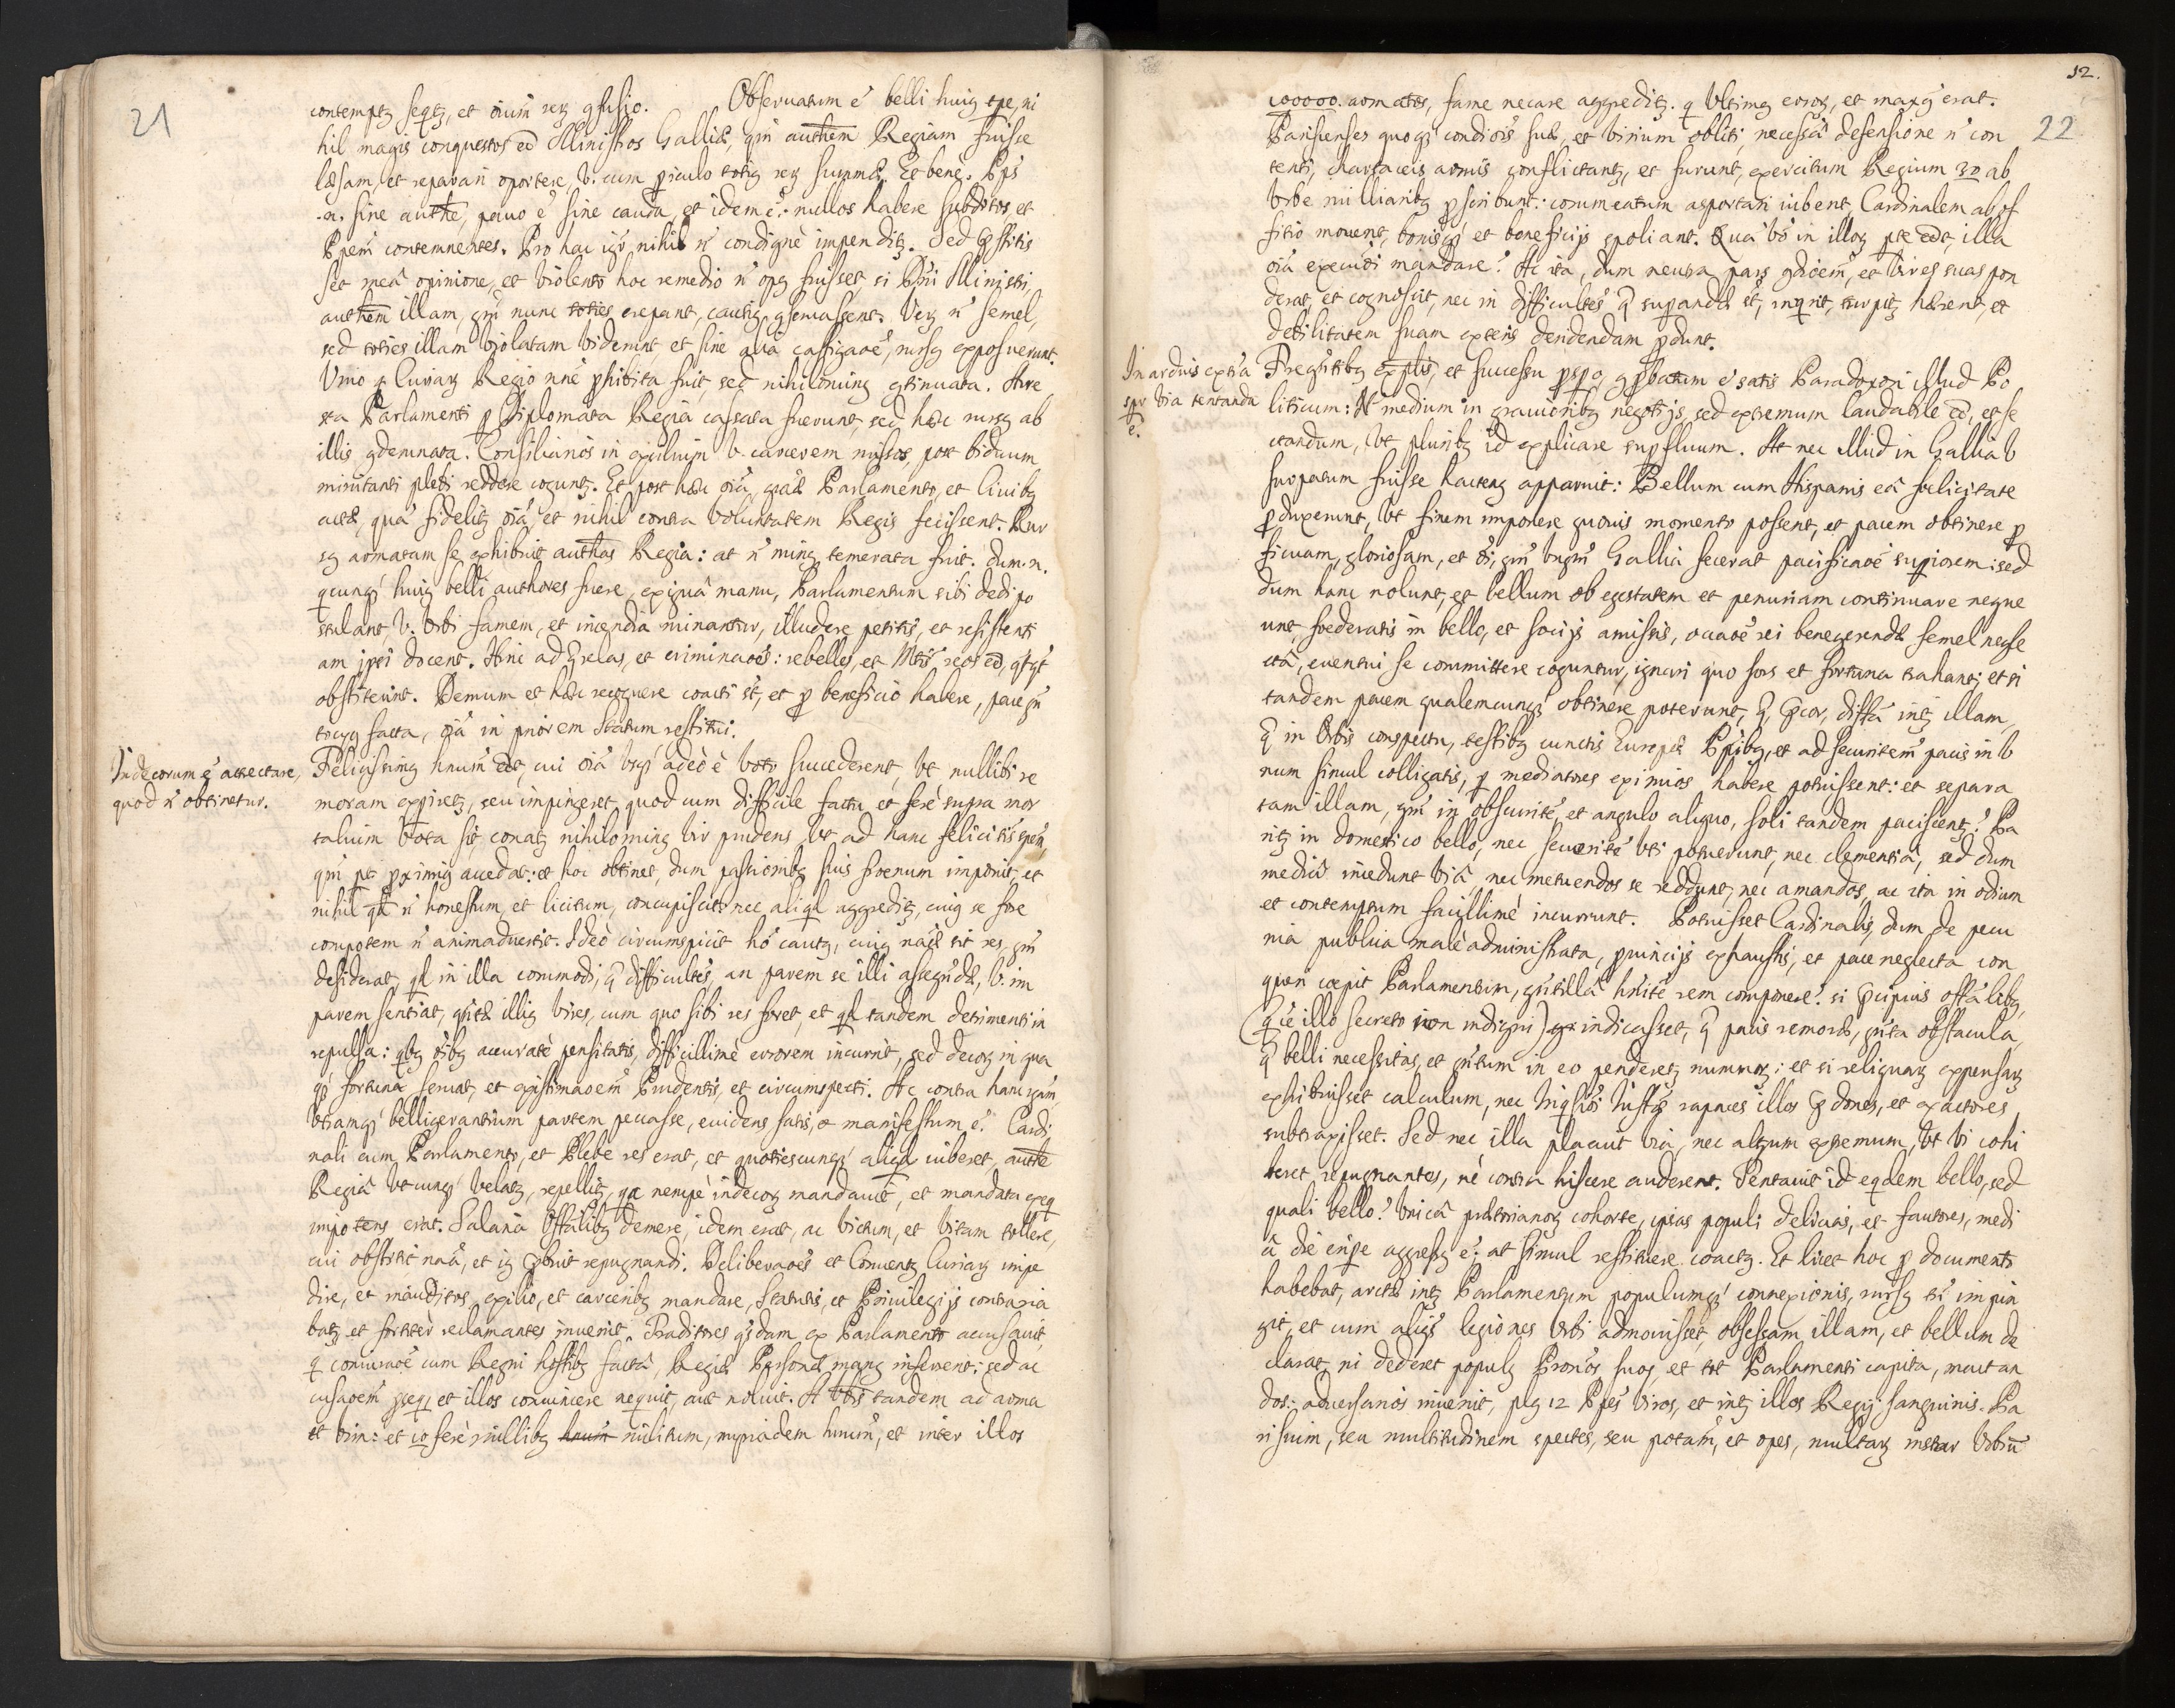 21
contemptq seqtq, et oium rerq gfusio. Obseruatum e belli huiq tpe, ni
hil magis conquestos eē Ministros Galliæ, qm authem Regiam fuisse
læsam, et reparari oportere, v. cum periculo totiq rerq summæ. Et bene. Pps
.n. sine authe, pauo ē sine cauda, et idem ē: nullos habere subditos, et
Ppem contemnentes. Pro hac igr nihil n condignè impenditq. Sed
set meâ opinione, et violento hoc remedio n opq fuisset, si Ministri,
authem illam, qm nunc toties crepant, cautiq gseruassent. Verq n semel,
sed toties illam violatam viderunt, et sine castigaoē, rursq exposuerunt.
Vnio Curiarq Regio nnē phibita fuit, sed nihilominq gtinuata. Arre
sta Parlamenti p Diplomata Regia cassata fuerunt, sed hæc rursq ab
illis gdemnata. Consiliarios in exilium v. carcerem missos, post biduum
minitanti plebi reddere coguntq. Et post hæc oiâ, graæ Parlamento, et Ciuibq
actæ, quâ fidelitq oiâ, et nihil contra voluntatem Regis fecissent. Rur
sq armatam se exhibuit authas Regia: at n minq temerata fuit. dum .n.
qcunq huiq belli authores fuere, exiguâ manu, Parlamentum sibi dedi po
stulant, v. Vrbi famem, et incendia minantur, illudere petitis, et resistenti
am ipsi docent. Hinc ad qrelas, et criminaoēs: rebelles, et Mtis reos eē, qtqt
obstiterint. Demum et hæc recoquere coacti st, et p beneficio habere, pace
factâ, oiâ in priorem statum restitui.
Indecorum ē attectare,
quod n obtinetur.
Felicissimq hnum eēt, cui oiâ vsq adeò è voto succederent, vt nullibi re
moram expiretq, seu impingeret, quod cum difficile factu, et ferè supra mor
talium vota sit, conatq nihilominq vir prudens, vt ad hanc felicitis spem,
qm pt proximiq accedat: et hoc obtinet, dum passionibq suis frenum imponit, et
nihil qd n honestum, et licitum, concupiscit: nec aliqd aggreditq, cuiq se fore
compotem n animaduertit. Ideò circumspicit hō cautq, cuiq naæ sit res, qm
desiderat, qd in illa commodi, difficultis, an parem se illi assequēdæ, v. im
parem sentiat, illiq vires, cum quo sibi res foret, et qd tandem detrimenti in
repulsa: qbq oibq accuratè pensitatis, difficillimè errorem incurrit, sed decorq in qua
qs fortuna seruat, et existimaoem Prudentis, et circumspecti. Ac contra hanc rgam,
vtramq belligerantium partem peccasse, euidens satis, et manifestum ē. Cardi
nali cum Parlamento, et Plebe res erat, et quotiescunq aliqd iuberet, authe
Regiâ vtcunq velatq, repellitq, qa nempè indecorq mandauit, et mandata exeq
impotens erat. Salaria Offalibq demere, idem erat, ac victum, et vitam tollere,
cui obstitit naa, et iq pbuit repugnandi. Deliberaoēs et Conuentq Curiarq impe
dire, et inauditos, exilio, et carceribq mandare, Statutis, et Priuilegijs contraria
batq, et fortiter reclamantes inuenit. Proditores qsdam ex Parlamento accusauit,
q coniuraoē cum Regni hostibq factâ, Regiæ Personæ manq inferrent: sed ac
cusaoem pseq, et illos conuincere nequit, aut noluit. A tandem ad arma
et vim: et 10 ferè millibq hnum militum, myriadem hnum, et inter illos
12.
22
100000. armatos, fame necare aggreditq. q Vltimq errorq, et maxq erat.
Parisienses quoq condiois suæ, et virium obliti, necessâ defensione n con
tenti, chartaceis armis gflictantq, et furunt, exercitum Regium 30 ab
Vrbe milliaribq pscribunt: commeatum asportari iubent, Cardinalem ab of
ficio mouent, bonisq et beneficijs spoliant. Quâ vō in illorq pte eēt, illa
oiâ execuoi mandare? Ac ita, dum neutra pars gdiōem, et vires suas pon
derat, et cognoscit, nec in difficultēs q superandæ st, inqrit, turpitq hærent, et
debilitatem suam exteris deridendam pdunt.
In arduis extra
spr via tentanda
ē.
Freqētibq exptis, et successu pspo, gpbatum ē satis Paradoxon illud Po
liticum: N medium in grauioribq negotijs, sed extremum laudabile eē, et se
ctandum, vt pluribq id explicare supfluum. At nec illud in Gallia v
surpatum fuisse hactenq apparuit: Bellum cum Hispanis eâ felicitate
pduxerunt, vt finem imponere quouis momento possent, et pacem obtinere p
ficuam, gloriosam, et oi, qm vnqm Gallia fecerat pacificaoē supiorem: sed
dum hanc nolunt, et bellum ob egestatem et penuriam continuare neque
unt, foederatis in bello, et socijs amissis, ocaoē rei benegerendæ semel negle
ctâ, euentui se committere coguntur, ignari quo sors et fortuna trahant; et si
tandem pacem qualemcunq obtinere poterunt, q, pcor, differâ intq illam
q in Orbis conspectu, testibq cunctis Europæ Ppibq, et ad securitem pacis in v
num simul colligatis, p mediatores eximios habere potuissent: et separa
tam illam, qm in obscuritē, et angulo aliquo, soli tandem pacisceng? Pa
ritq in domestico bello, nec seueritē vti potuerunt, nec clementiâ, sed dum
mediâ incedunt viâ nec metuendos se reddunt, nec amandos, ac ita in odium
et contemptum facillimè incurrunt. Potuisset Cardinalis, dum de pecu
nia publica malè administrata, puincijs exhaustis, et pace neglecta con
queri coepit Parlamentum, hnitē rem componere? si pcipuis offalibq
(qiē illo secreto non indigni) indicasset, q pacis remoræ, obstacula,
q belli necessitas, et in eo penderetq nummorq: et si reliquarq expensarq
exhibuisset calculum, nec Inqsiōi iustæ rapaces illos pdones, et exactores
subtraxisset. Sed nec illa placuit via, nec altqum extremum, vt vi cohi
beret repugnantes, nè contra hiscere auderent. Tentauit id eqdem bello, sed
quali bello? vnicâ prætorianorq cohorte, ipsas populi delicias, et fautores, medi
â die eripe aggressq ē; at simul restituere coactq. Et licet hoc p documento
habebat, arctæ intq Parlamentum populumq connexionis, rursq tn impin
git, et cum aliqs legiones Vrbi admouisset, obsessam illam, et bellum de
clarat, ni dederet populq suos, et tot Parlamenti capita, mactan
dos: aduersarios inuenit, plq 12 Ppes viros, et intq illos Regij sanguinis. Pa
risium, seu multitudinem spectes, seu potam, et opes, multarq instar Vrbiū